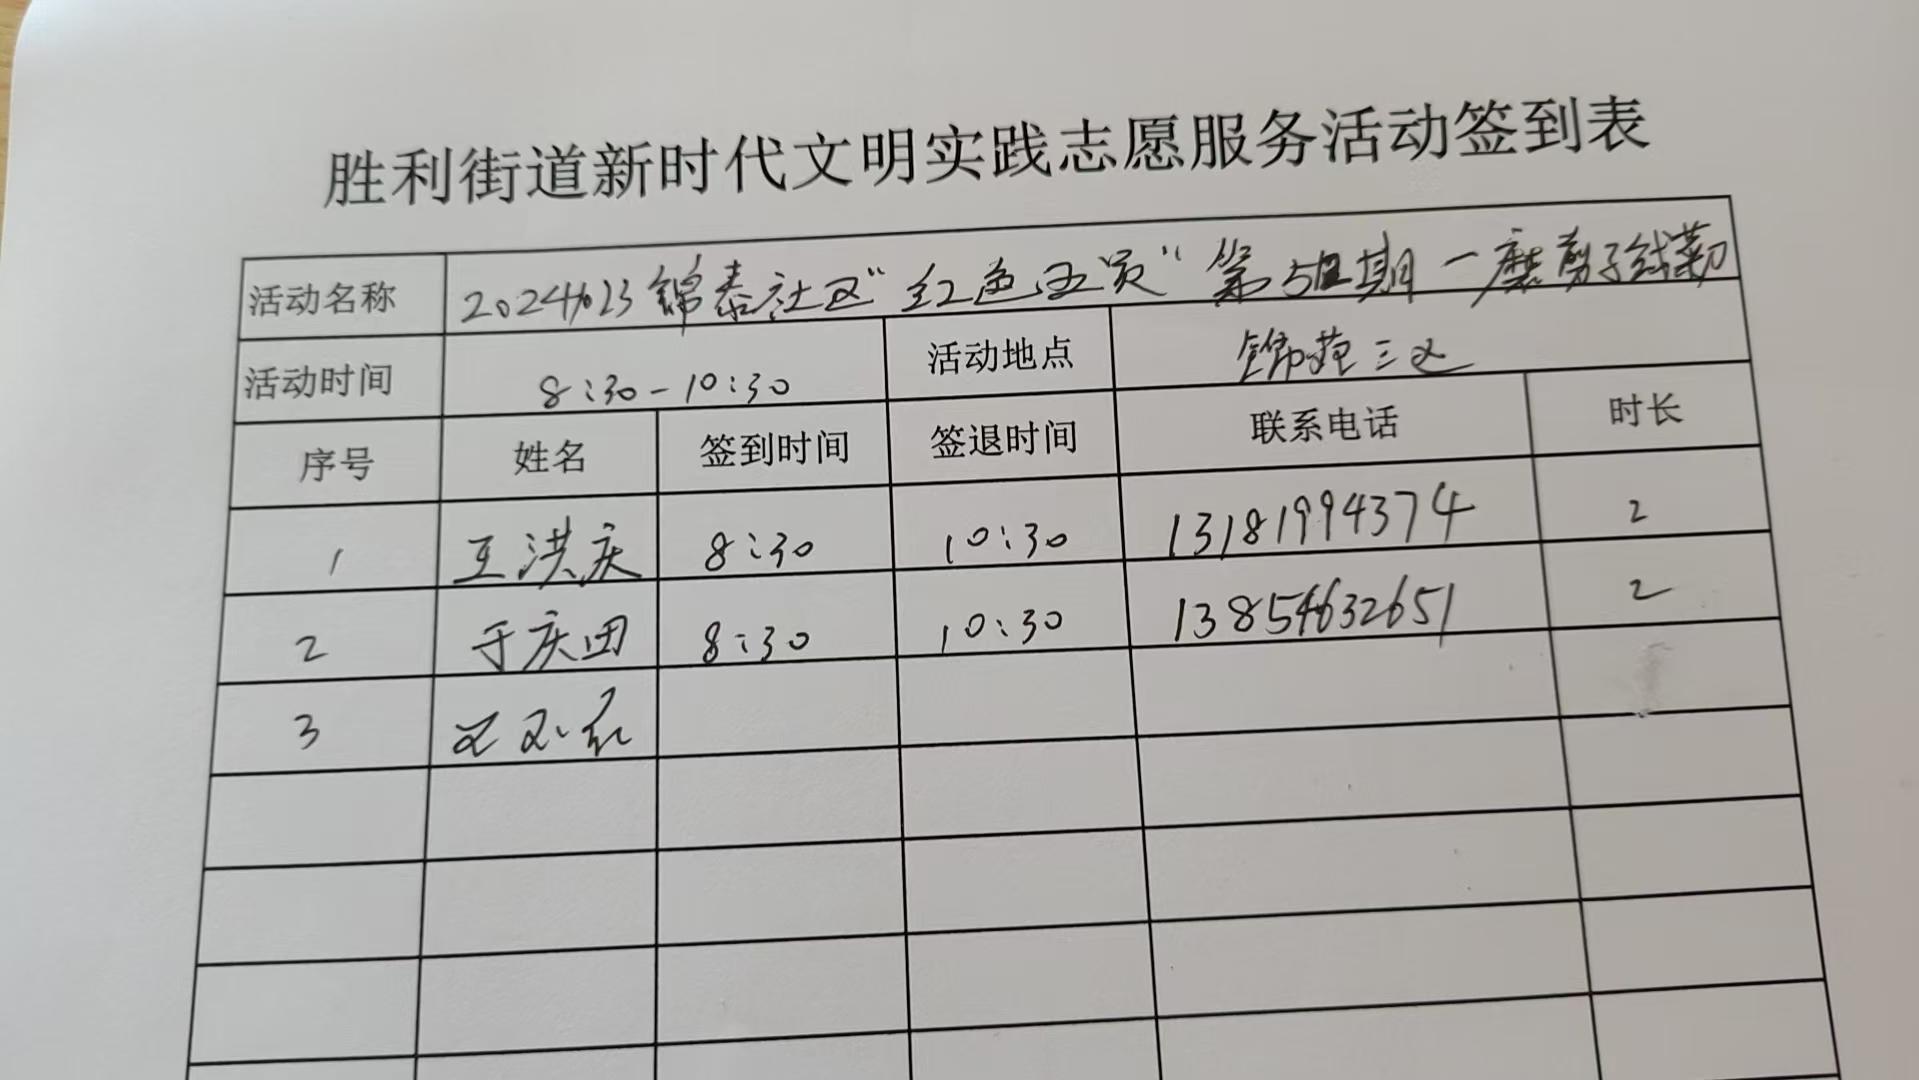 胜利街道新时代文明实践志愿服务活动签到表
活动名称 锦泰社区“红色 第5 期一磨剪子
活动时间 8:30-10:30 活动地点 锦苑三区
序号 姓名 签到时间 签退时间 联系电话 时长
1 王洪庆 8:30 10:30 13181994374 2
2 于庆田 8:30 10:30 13854632651 2
3